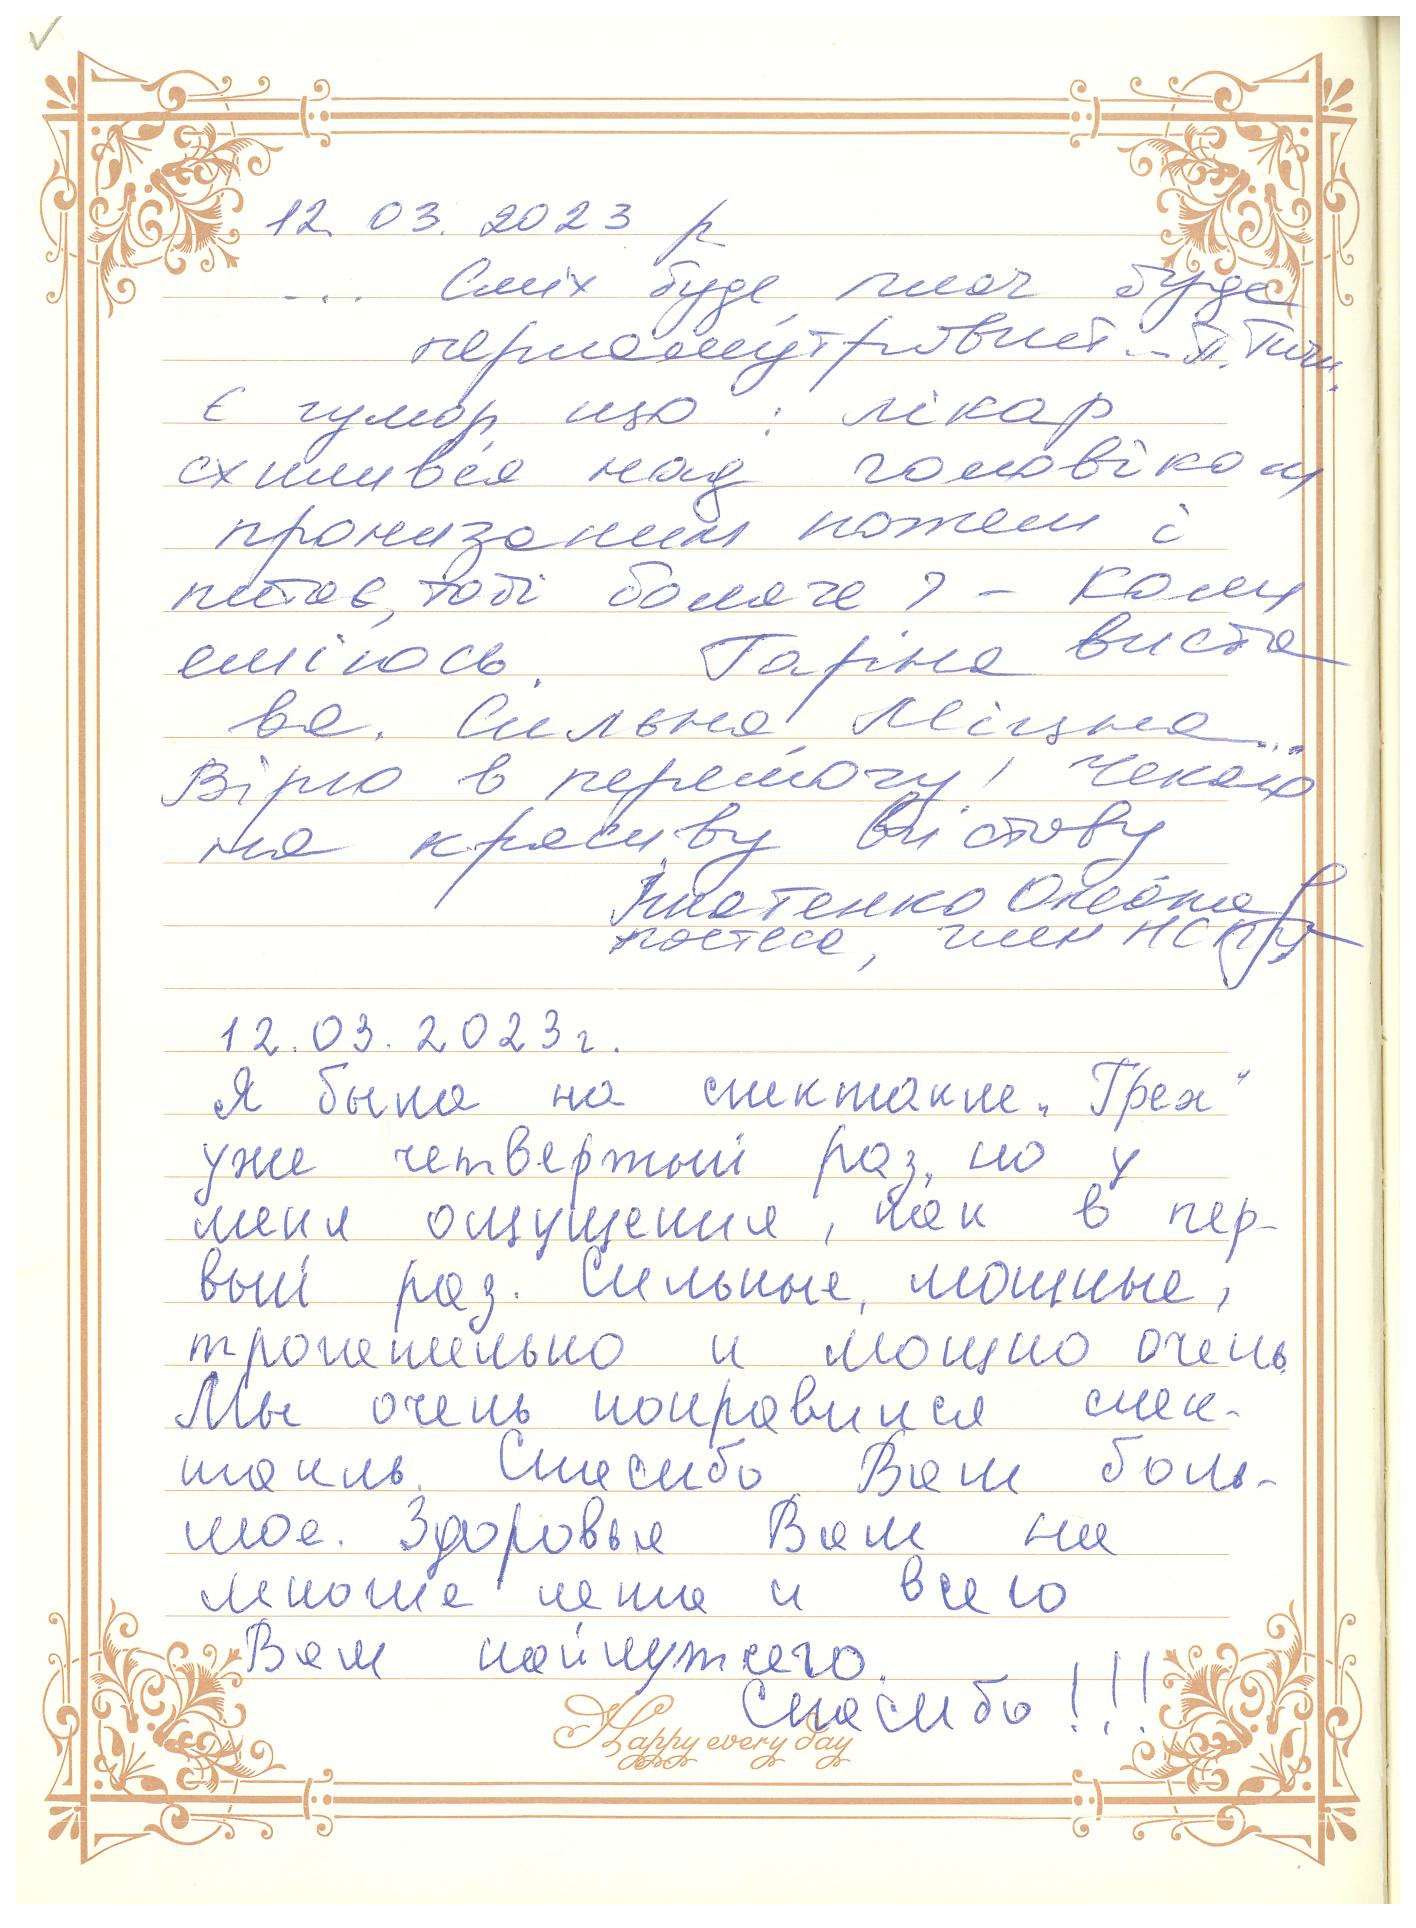 12. 03. 2023 р
... Сміх буде, плач буде
перламутровий - П. Тич.
Є гумор що: лікар
схилився над чоловіком
пронизаним ножем і
питає, тобі боляче? - Коли
сміюсь. Гарна виста
ва. Сильна, Міцна...
Вірю в перемогу! Чекаю
на красиву виставу
Ігнатенко Оксана
поетеса, член НСПУ
12.03.2023г.
Я была на спектакле „Грех"
уже четвертый раз, но у
меня ощущения, как в пер-
вый раз. Сильные, мощные,
трогательно и мощно очень.
Мы очень понравился спек-
такль. Спасибо Вам боль-
шое. Здоровья Вам на
многие лета и всего
Вам найлучшего.
Спасибо!!!
Happy every day